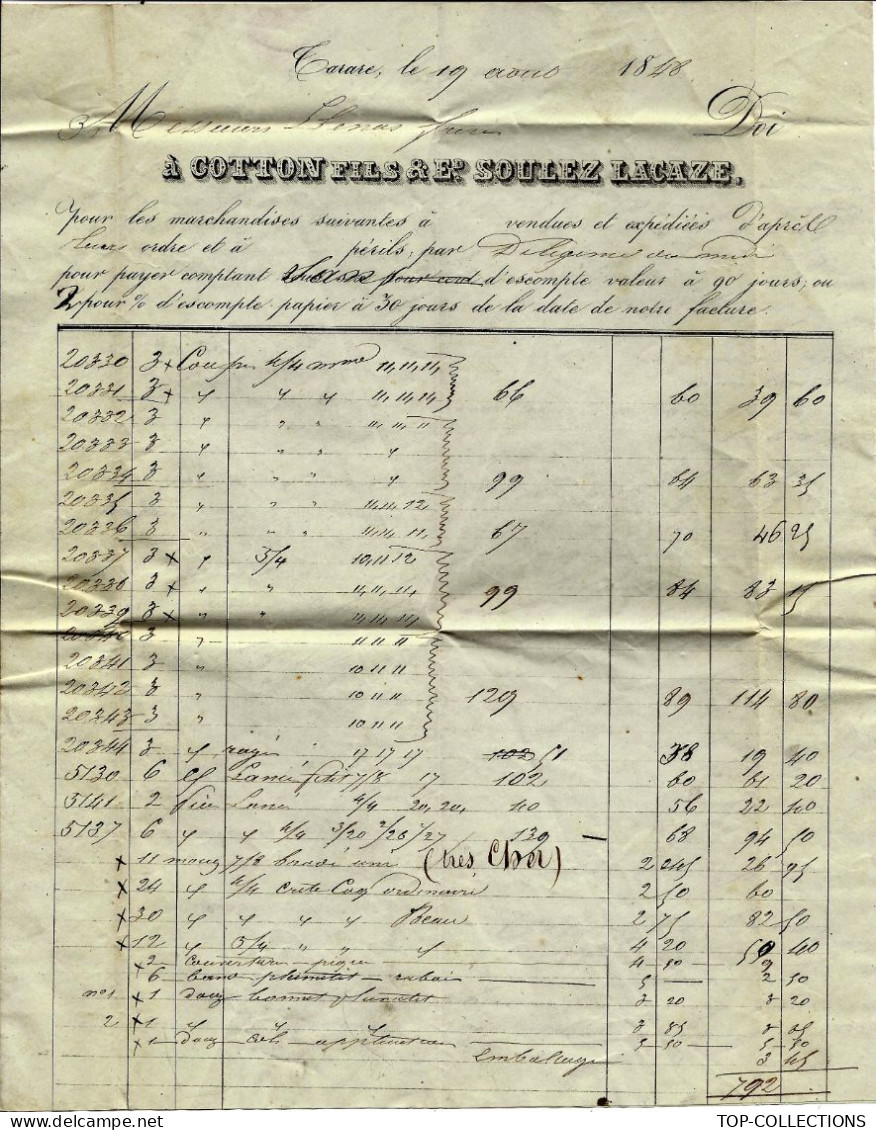 Tarare, le 19 aout 1848
Messieurs frères Doi
À COTTON FILS & Ed. SOULEZ LACAZE.
pour les marchandises suivantes à vendues et expédiées d'après
leurs ordre et à périls, par Diligence du midi
pour payer comptant pour cent d'escompte valeur à 90 jours, ou
2 pour % d'escompte papier à 30 jours de la date de notre facture.
20330 3 x Coupes 4/4 11,11,11
20331 3 x 11,11,11 66 60 39 60
20332 3 11,11,11
20333 3
20334 3 99 64 63 35
20335 3 11,11,12
20336 3 11,11,11 67 70 46 25
20337 3 x 5/4 10,11,12
20338 3 x 11,11,11 99 84 83 15
20339 3 x 11,11,11
20340 3 11 11 11
20341 3 10 11 11
20342 3 10 11 11 129 89 114 80
20343 3 10 11 11
20344 3 17 17 17 102 51 38 19 40
5130 6 7/8 17 102 60 61 20
5141 2 4/4 20, 20, 40 56 22 40
5137 6 4/4 3/20 2/26 1/27 139 68 94 50
x 11 mouz 7/8 (très Cher) 2 245 26 95
x 24 4/4 Crete Coq ordinaire 2 50 60
x 30 Beau 2 75 82 50
x 12 5/4 4 20 50 40
x 2 couverture piquée 4 50 9
x 6 rabais 5 2 50
n° 1 x 1 douz bonnet 3 20 3 20
2 x 1 3 85 3 85
x 1 douz application 5 50 5 50
Emballage 3 45
792
TOP-COLLECTIONS